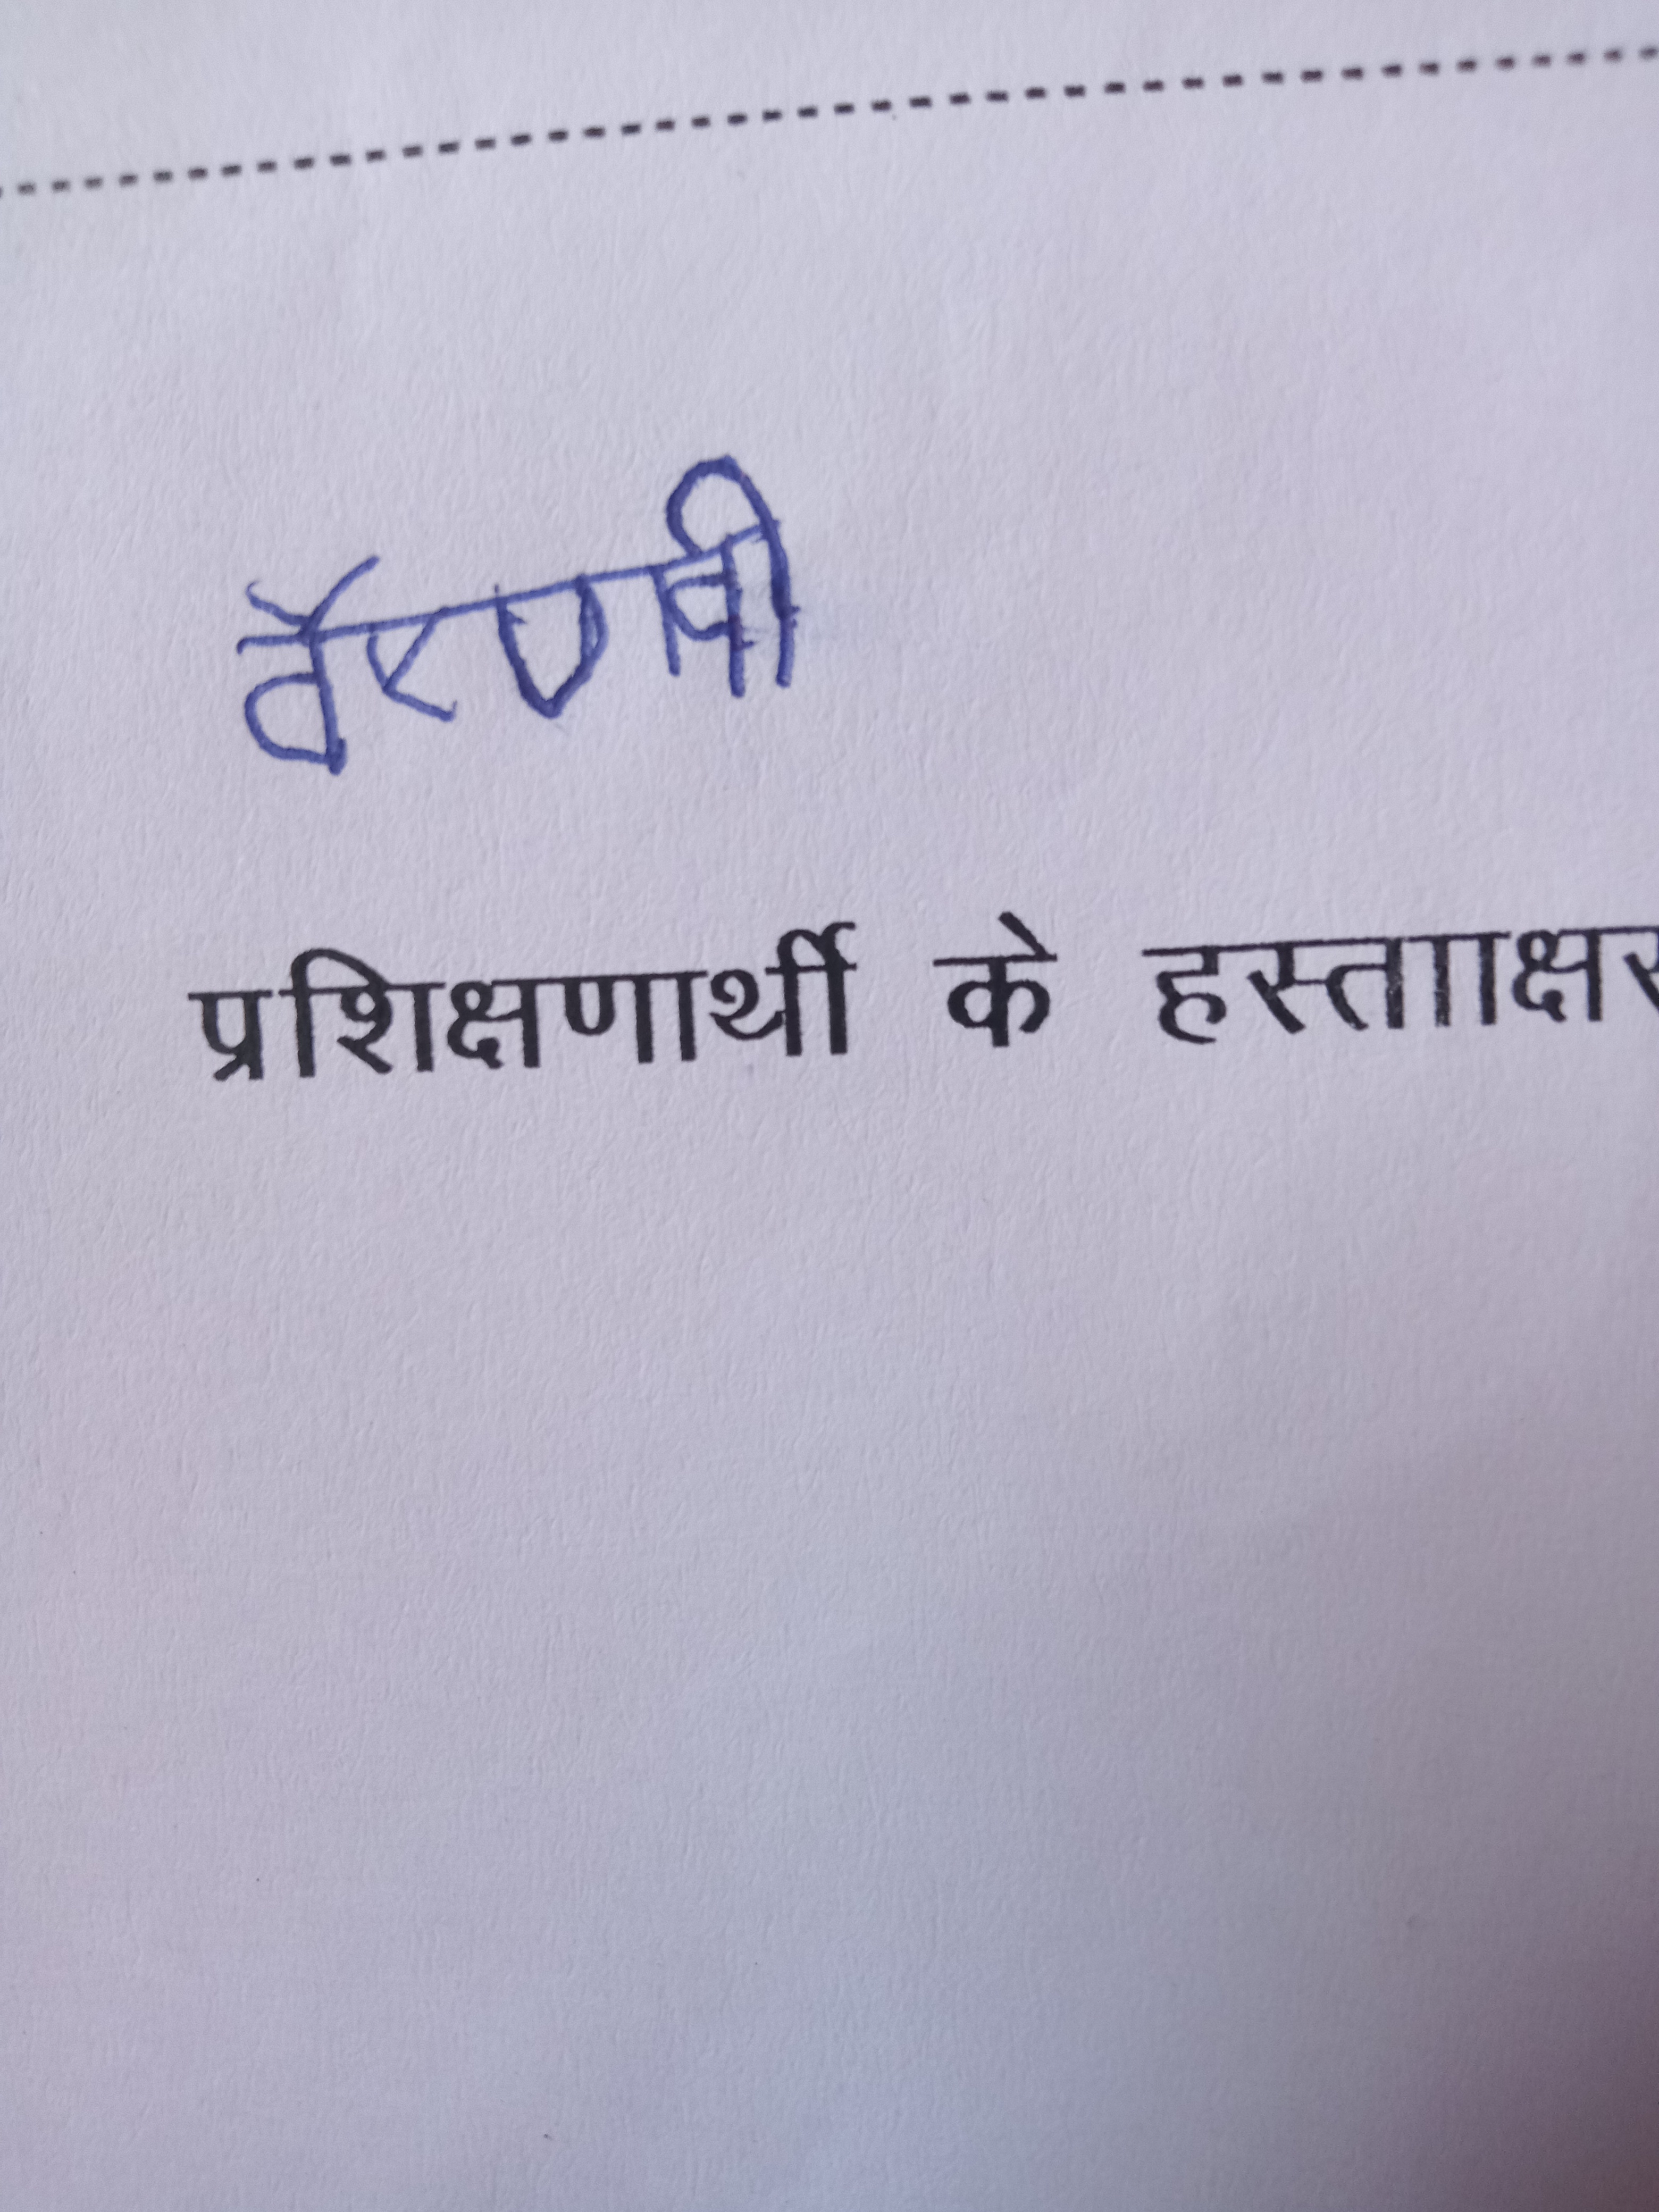 वैष्णवी
प्रशिक्षणार्थी के हस्तााक्षर